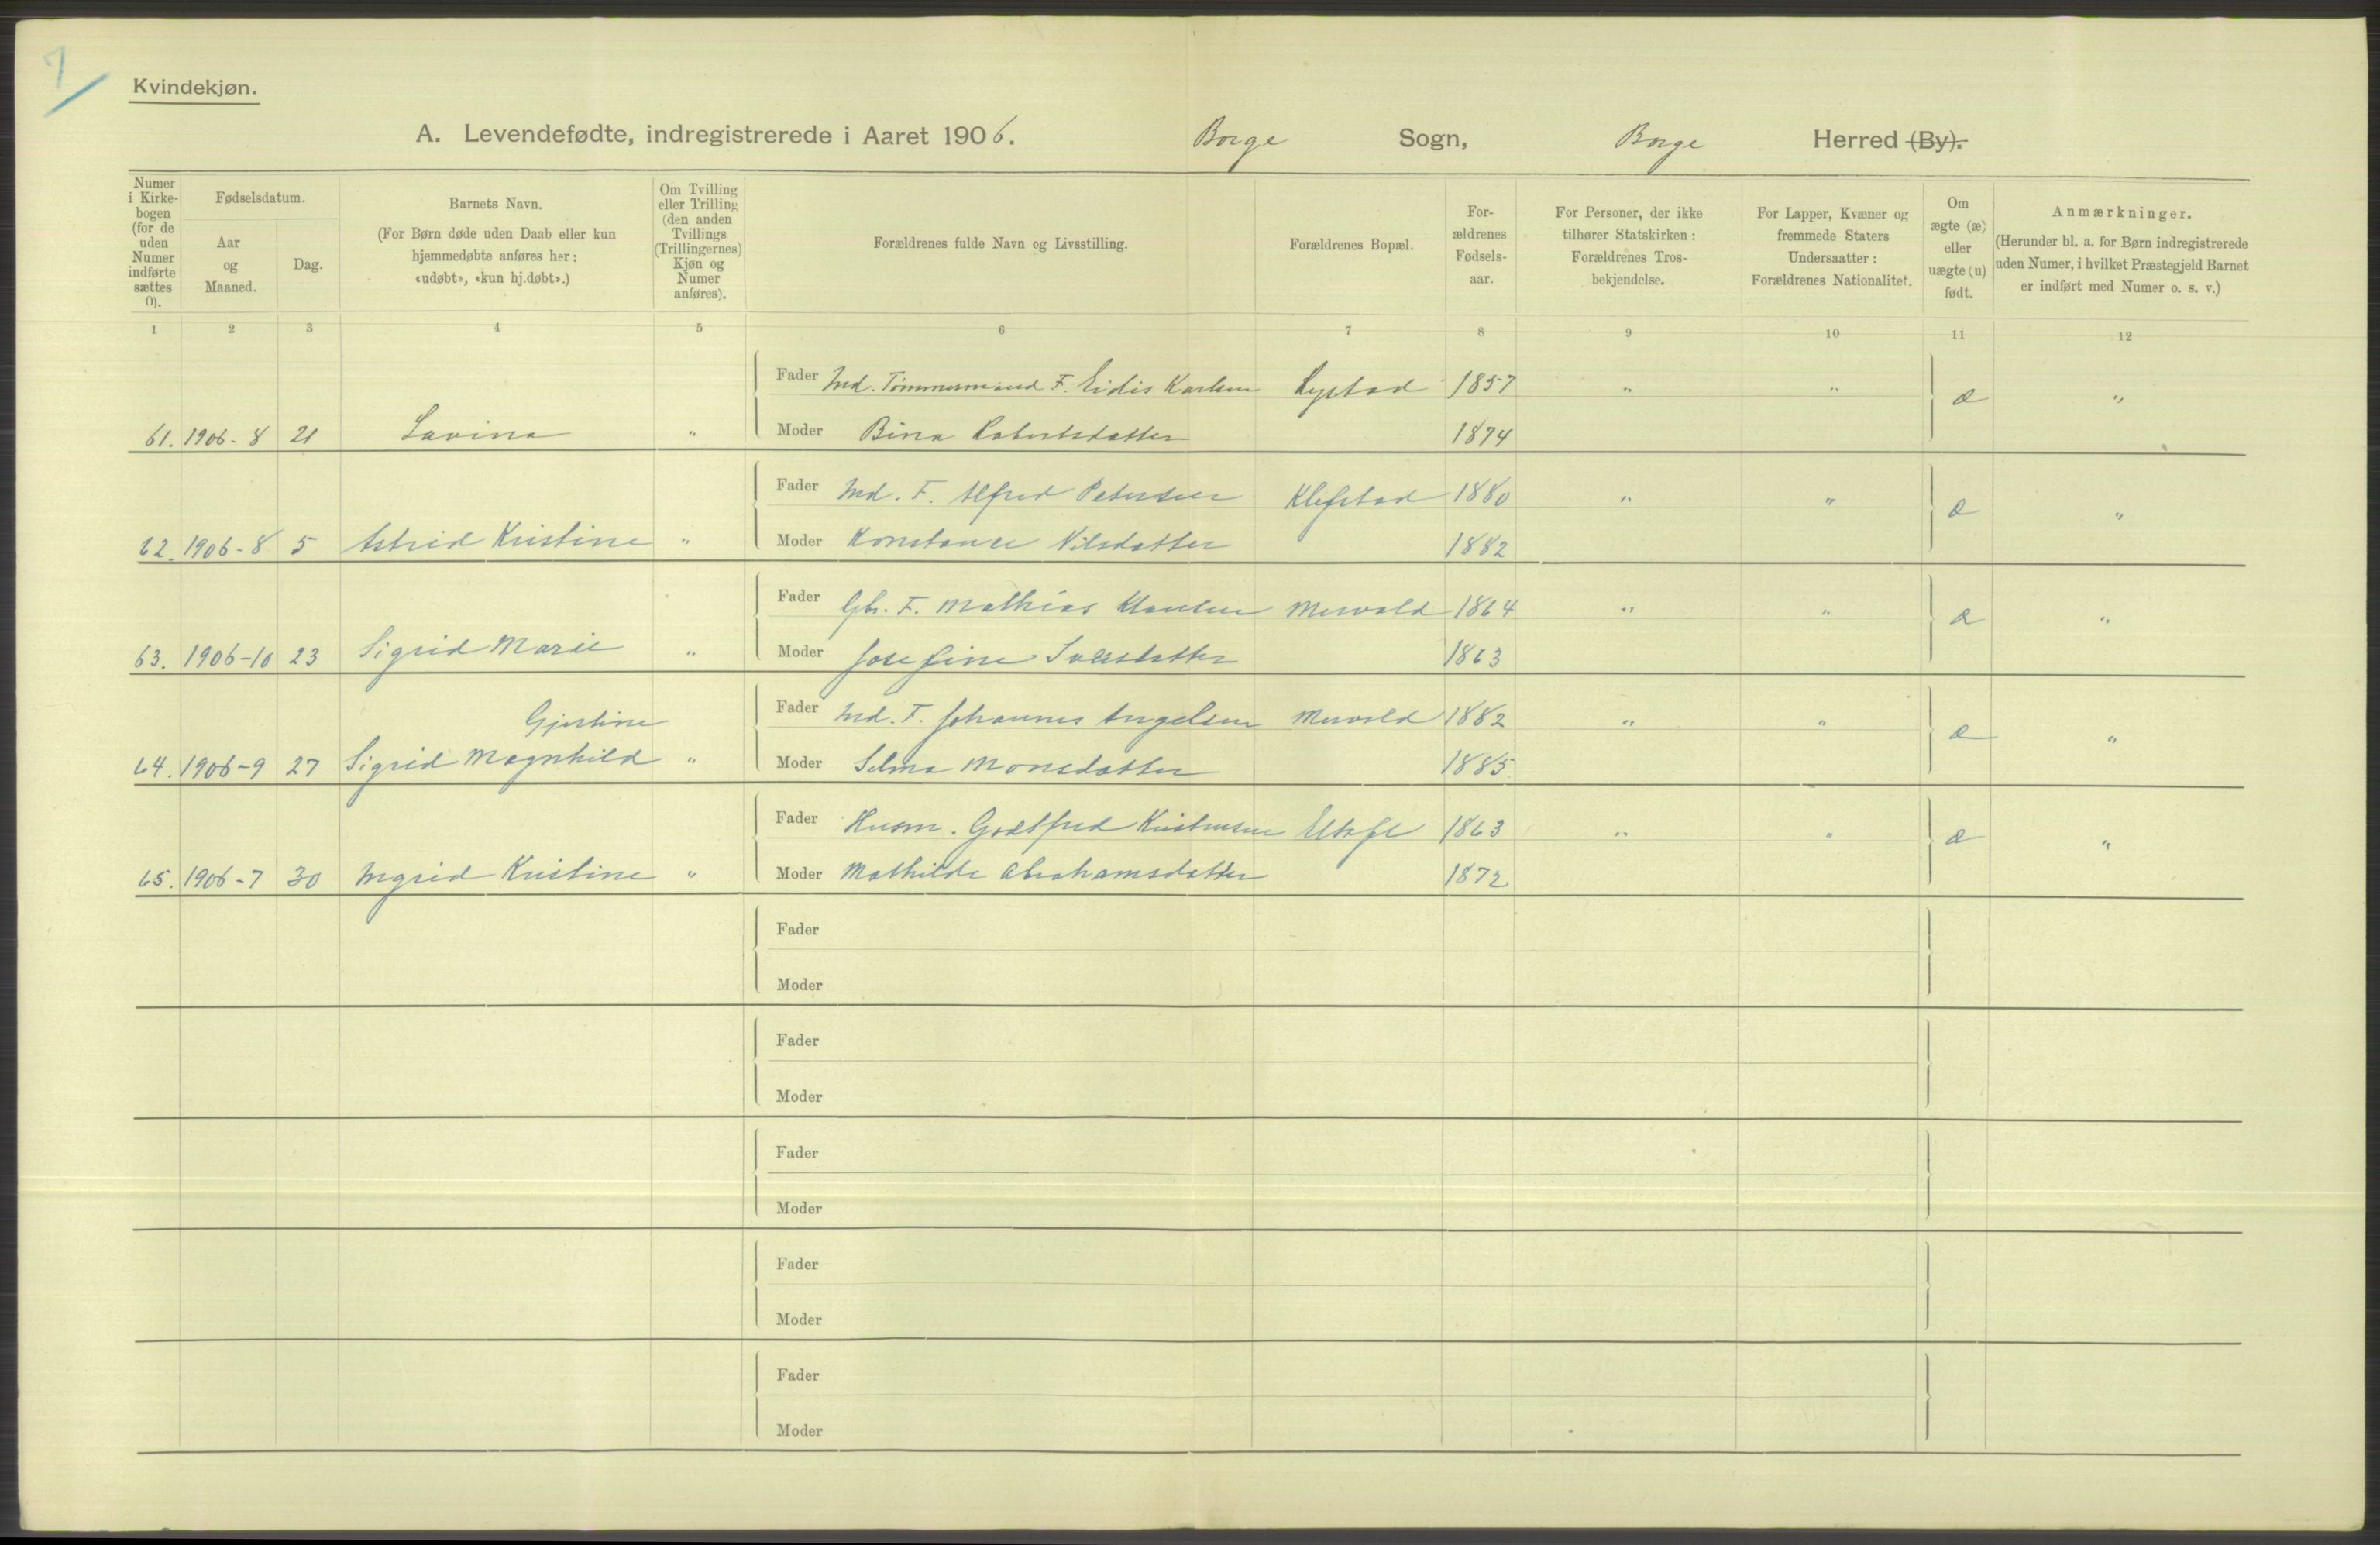 7
Kvindekjøn.
A. Levendefødte, indregistrerede i Aaret 1906. Borge Sogn, Borge Herred (By).
Numer i Kirkebogen (for de uden Numer indførte sættes 0).
Fødselsdatum.
Aar og Maaned.
Dag.
Barnets Navn.
(For Børn døde uden Daab eller kun hjemmedøbte anføres her: «udøbt», «kun hj.døbt».)
Om Tvilling eller Trilling (den anden Tvillings (Trillingernes) Kjøn og Numer anføres).
Forældrenes fulde Navn og Livsstilling.
Forældrenes Bopæl.
Forældrenes Fødselsaar.
For Personer, der ikke tilhører Statskirken: Forældrenes Trosbekjendelse.
For Lapper, Kvæner og fremmede Staters Undersaatter: Forældrenes Nationalitet.
Om ægte (æ) eller uægte (u) født.
Anmærkninger.
(Herunder bl. a. for Børn indregistrerede uden Numer, i hvilket Præstegjeld Barnet er indført med Numer o. s. v.)
1 2 3 4 5 6 7 8 9 10 11 12
Fader Ind. Tømmermand F. Eidis Karlsen 1857 " " æ "
61. 1906-8 21 Lavina " Moder Bina Robertsdatter 1874
Fader Ind. F. Alfred Petersen Klefstad 1880 " " æ "
62. 1906-8 5 Astrid Kristine " Moder Konstance Nilsdatter 1882
Fader Gbr. F. Mathias Klausen Mervold 1864 " " æ "
63. 1906-10 23 Sigrid Marie " Moder Josefine 1863
Gjertine Fader Ind. F. Johannes Angelsen Mervold 1882 " " æ "
64. 1906-9 27 Sigrid Magnhild " Moder Selma Monsdatter 1885
Fader Husm. Godtfred Kristensen 1863 " " æ "
65. 1906-7 30 Ingrid Kristine " Moder Mathilde Abrahamsdatter 1872
Fader
Moder
Fader
Moder
Fader
Moder
Fader
Moder
Fader
Moder